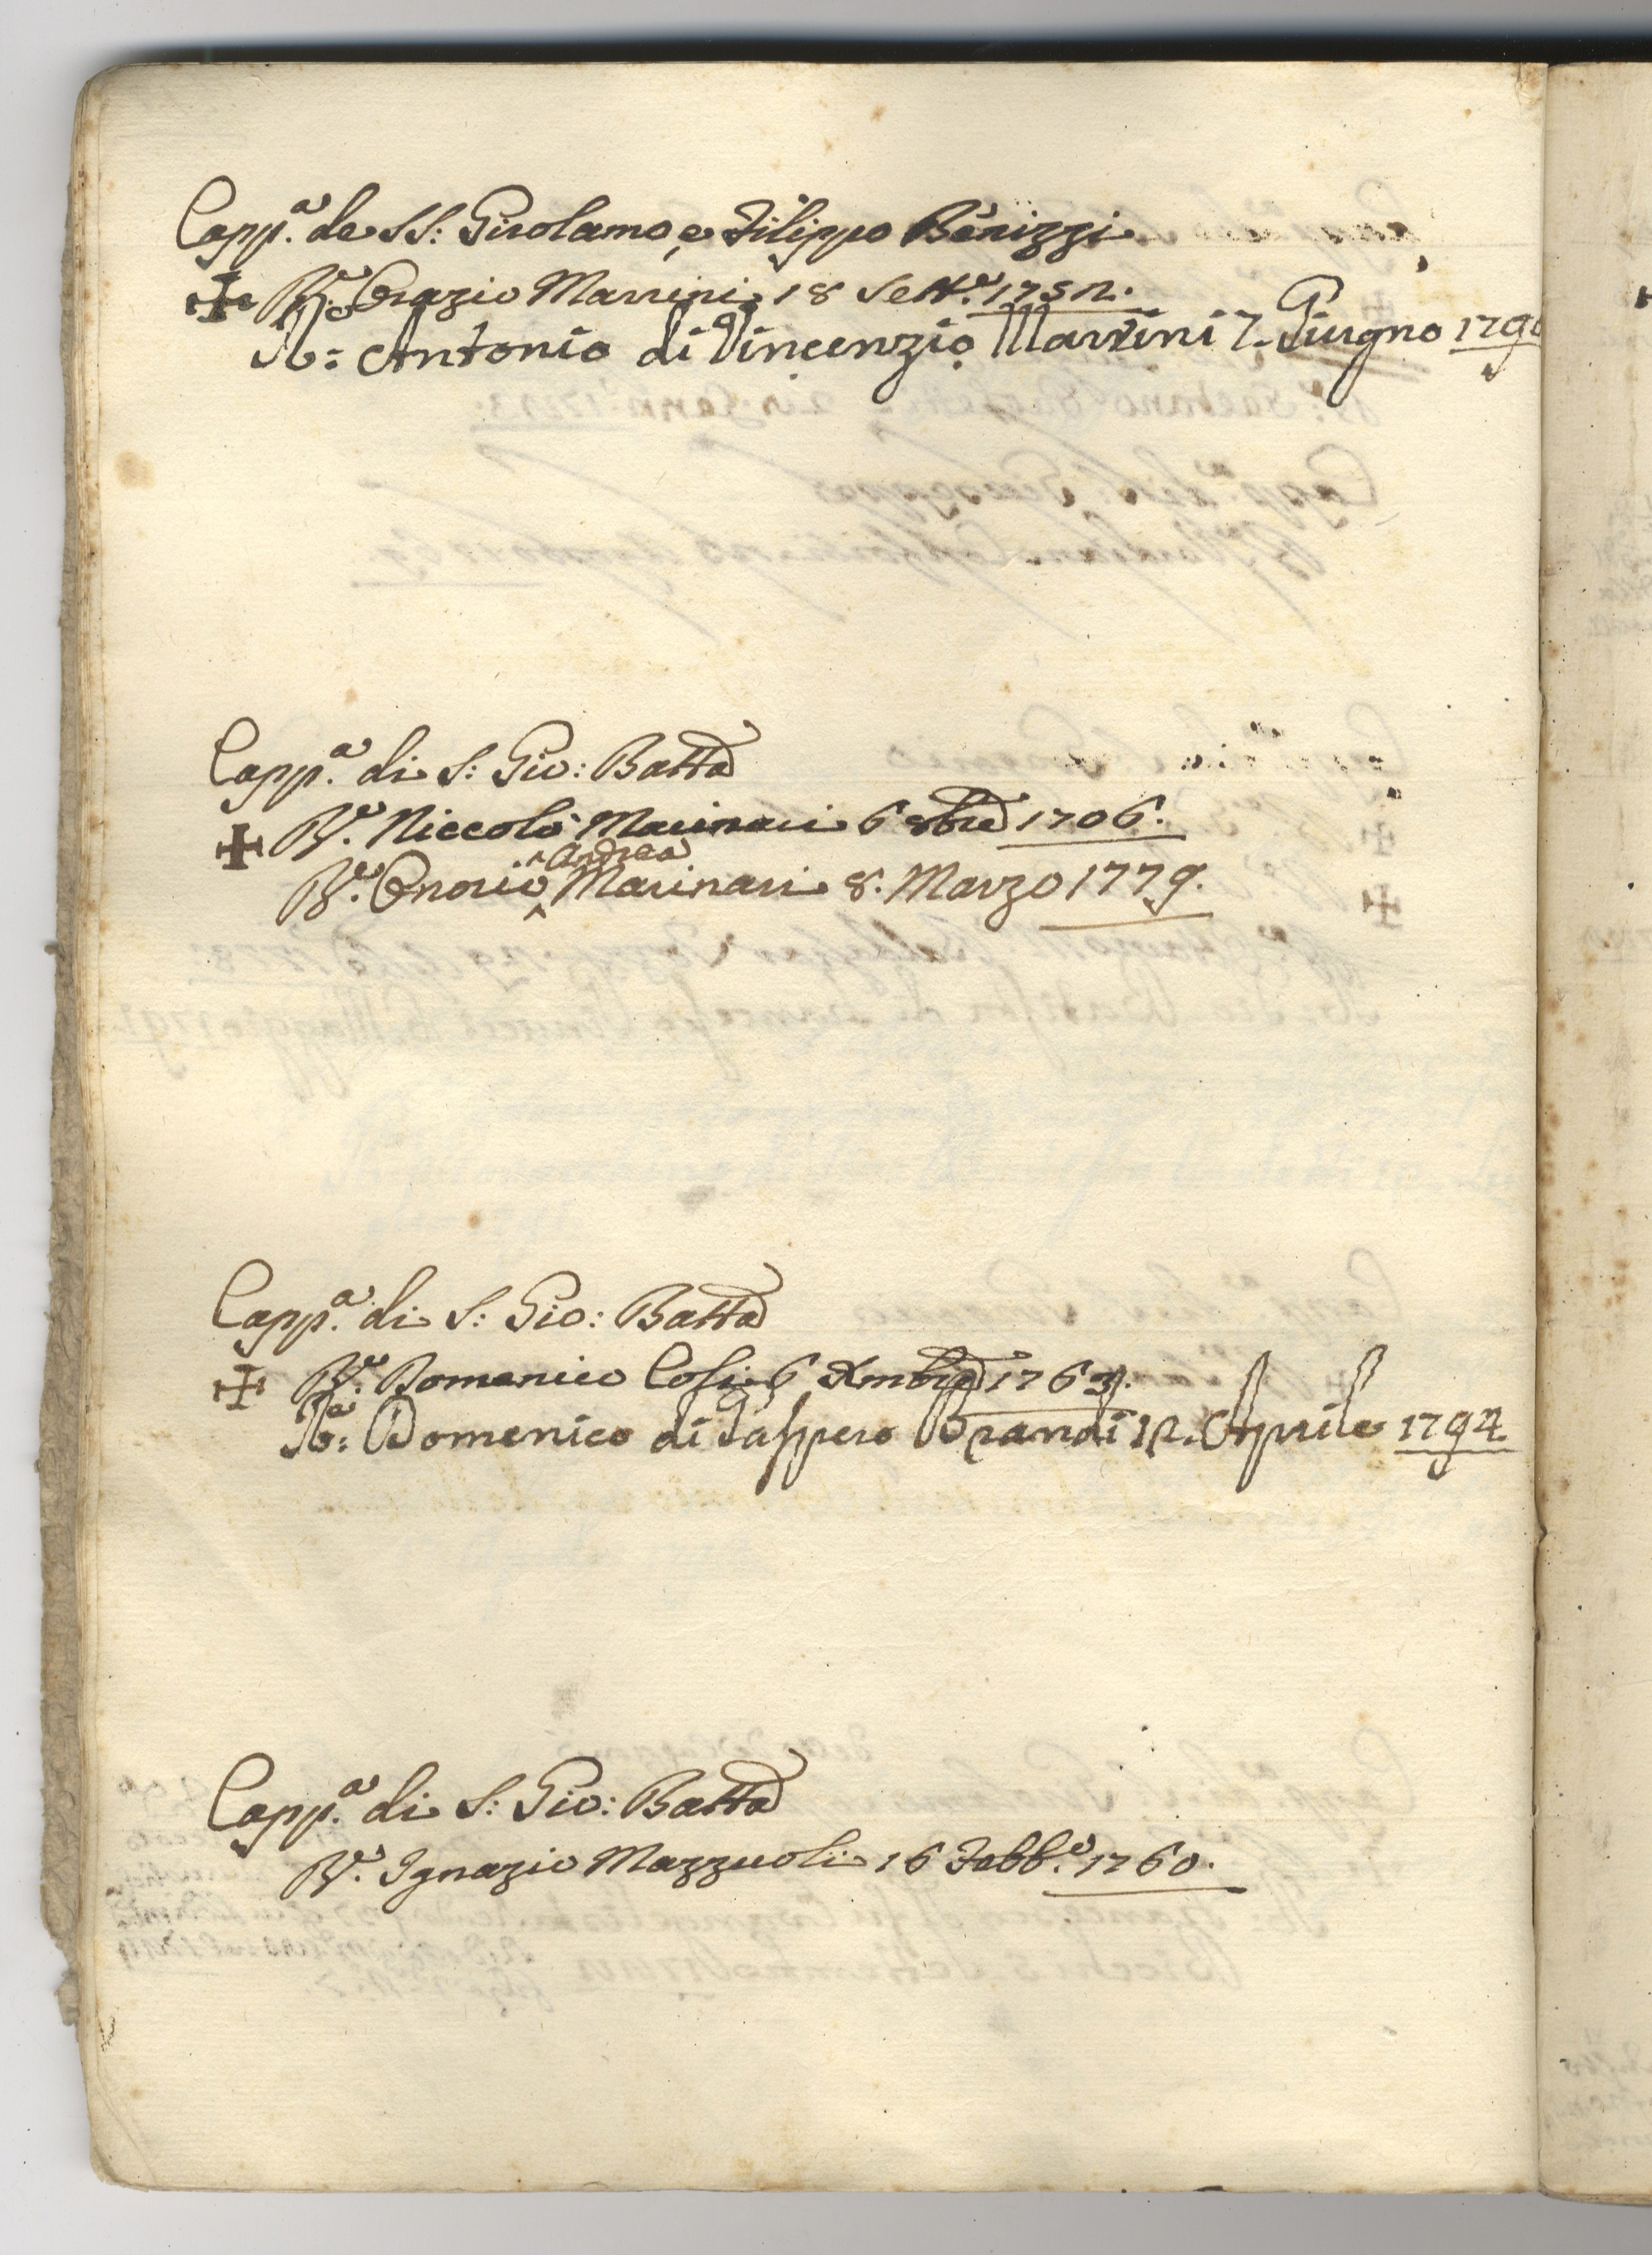 Capp.a de SS: Girolamo, e Filippo Benizzi
✠ R.e Orazio Marrini 18 Sett.e 1752.
R.e: Antonio di Vincenzio Marrini 7. Giugno 179
Capp.a di S: Gio: Batta
✠ R.e Niccolò Marinari 6 8bre 1706.
Andrea
R.e Onorio ^ Marinari 8. Marzo 1779.
Capp.a di S: Gio: Batta
✠ R.e Domenico Cosi 6 Xmbre 1763.
R.e: Domenico di Gaspero Brandi 12. Aprile 1794
Capp.a di S: Gio: Batta
R.e Ignazio Mazzuoli 16 Febb.o 1760.